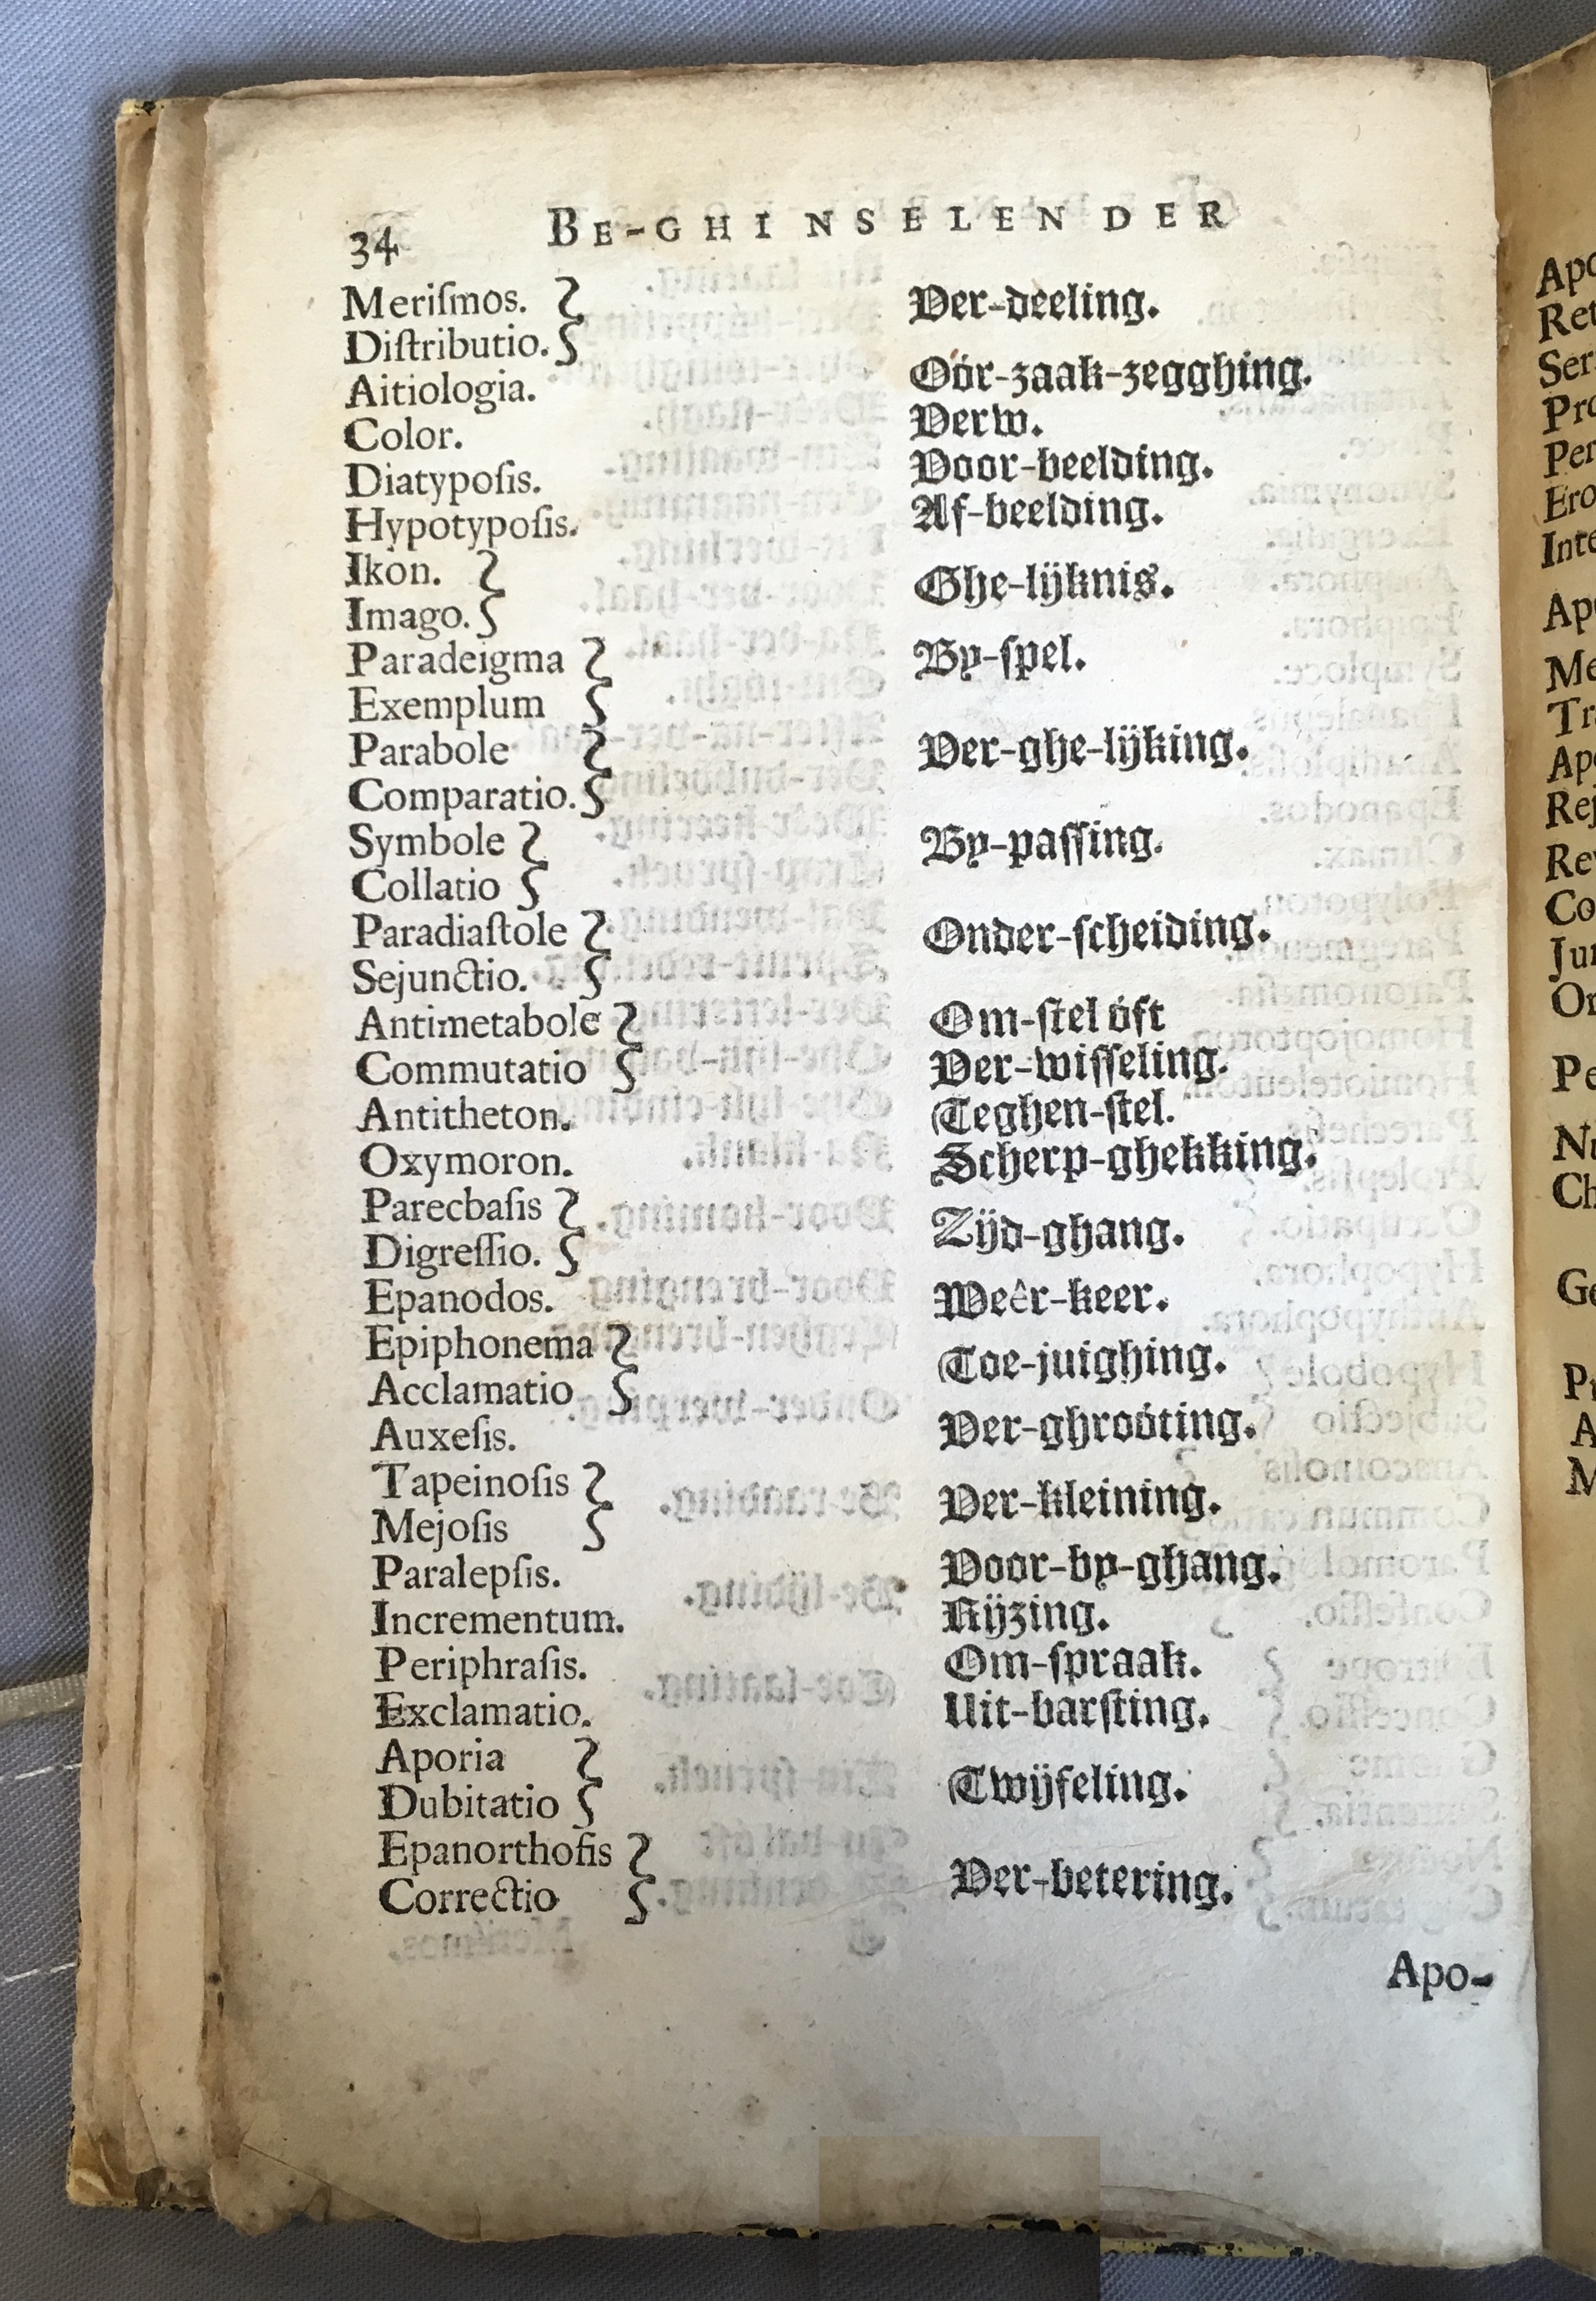 34 BE-GHINSELEN DER
Meriſmos. Ver-deeling.
Diſtributio.
Aitiologia. Oór-zaak-zegghing.
Color. Verw.
Diatypoſis. Voor-beelding.
Hypotypoſis. Af-beelding.
Ikon. Ghe-lijknis.
Imago.
Paradeigma By-ſpel.
Exemplum
Parabole Ver-ghe-lijking.
Comparatio.
Symbole By-paſſing.
Collatio
Paradiaſtole Onder-ſcheiding.
Sejunctio.
Antimetabole Om-ſtel óft
Commutatio Ver-wiſſeling.
Antitheton. Teghen-ſtel.
Oxymoron. Scherp-ghekking.
Parecbaſis Zijd-ghang.
Digreſſio.
Epanodos. Weêr-keer.
Epiphonema Toe-juighing.
Acclamatio
Auxeſis. Ver-ghroóting.
Tapeinoſis Ver-kleining.
Mejoſis
Paralepſis. Voor-by-ghang.
Incrementum. Rijzing.
Periphraſis. Om-ſpraak.
Exclamatio. Uit-barſting.
Aporia Twijfeling.
Dubitatio
Epanorthoſis Ver-betering.
Correctio
Apo-
Apo
Ret
Ser
Pro
Per
Ero
Inte
Ap
Me
Tr
Ap
Rej
Re
Co
Jun
Or
Pe
Nu
Ch
Ge
Pr
A
M